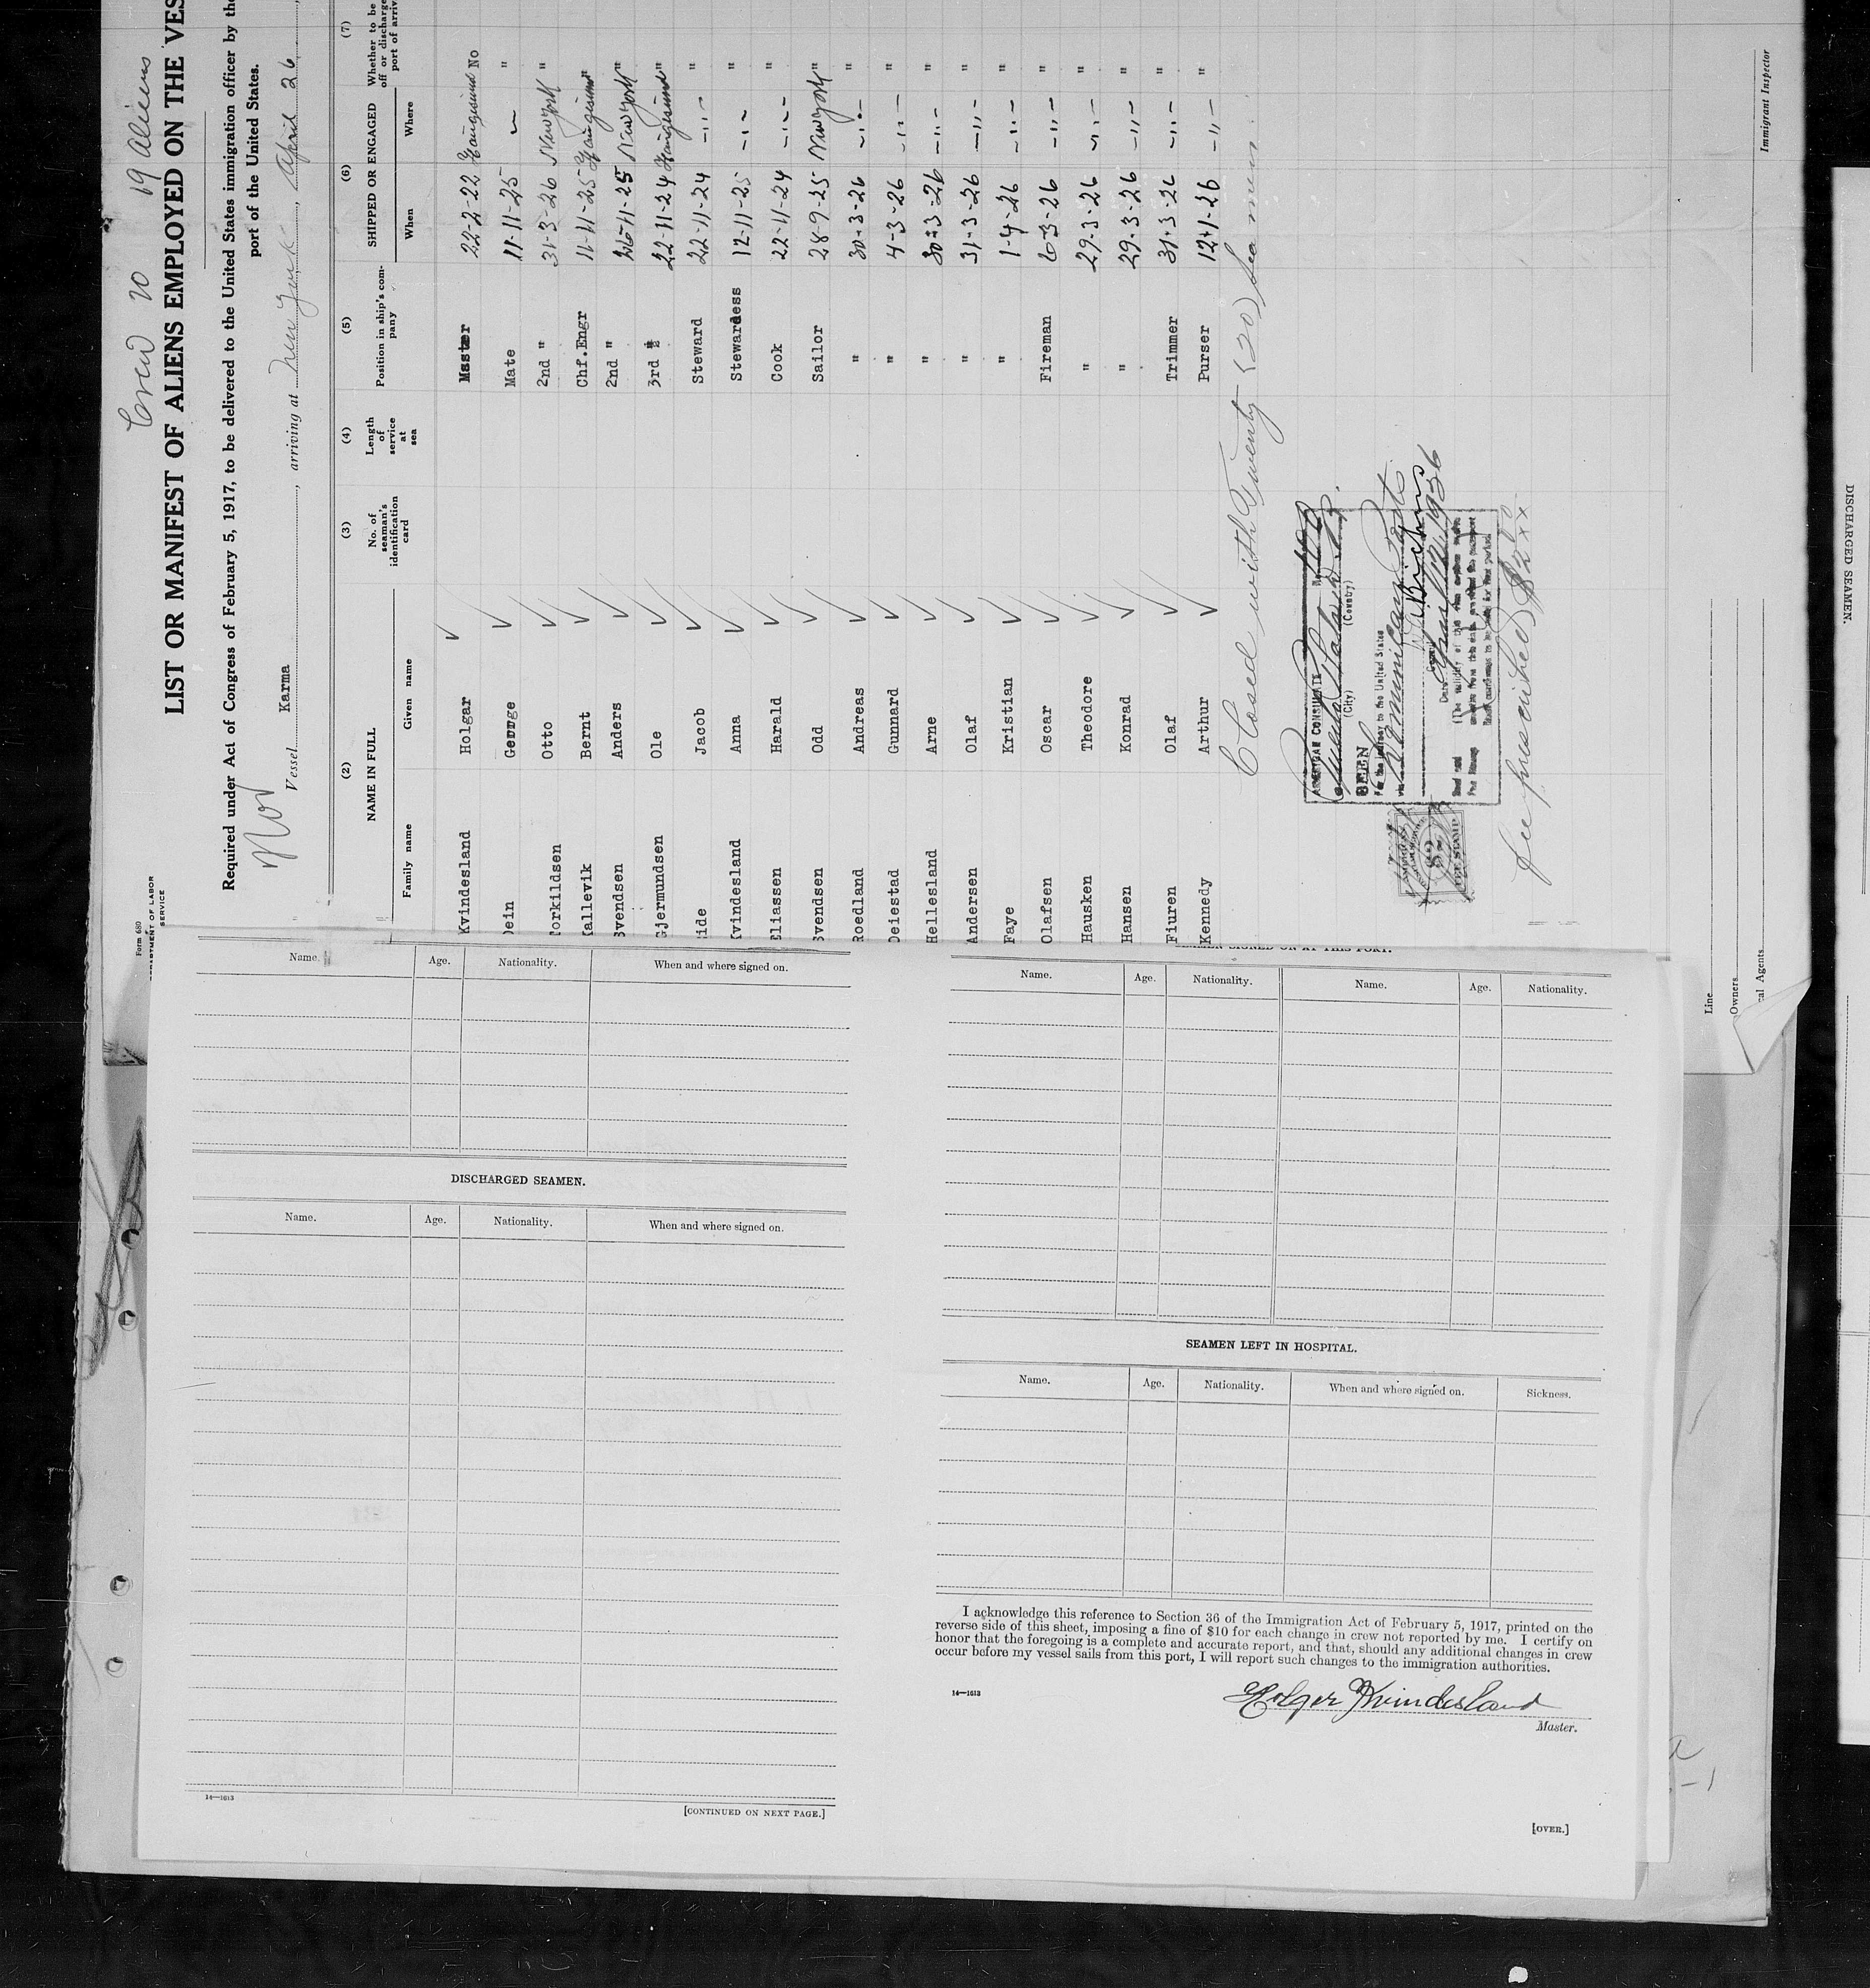 Crew 20 19 Aliens
Form 680
DEPARTMENT OF LABOR
SERVICE
LIST OR MANIFEST OF ALIENS EMPLOYED ON THE VES
Required under Act of Congress of February 5, 1917, to be delivered to the United States immigration officer by the
port of the United States.
Nor
Vessel Karma, arriving at New York, April 26
(2) (3) (4) (5) (6) (7)
NAME IN FULL No. of seaman's identification card Length of service at sea Position in ship's company SHIPPED OR ENGAGED Whether to be off or discharge port of arriv
Family name Given name When Where
Kvindesland Holgar Master 22-2-22 Haugesund No
Dein George Mate 11-11-25 "
Torkildsen Otto 2nd " 31-3-26 New York "
Kallevik Bernt Chf.Engr 11-11-25 Haugesund "
Svendsen Anders 2nd " 26-11-25 New York "
Gjermundsen Ole 3rd " 22-11-24 Haugesund "
ide Jacob Steward 22-11-24 -"- "
Kvindesland Anna Stewardess 12-11-25 -"- "
Eliassen Harald Cook 22-11-24 -"- "
Svendsen Odd Sailor 28-9-25 New York "
Roedland Andreas " 30-3-26 -"- "
Deiestad Gunnard " 4-3-26 -"- "
Hellesland Arne " 30-3-26 -"- "
Andersen Olaf " 31-3-26 -"- "
Faye Kristian " 1-4-26 -"- "
Olafsen Oscar Fireman 6-3-26 -"- "
Hausken Theodore " 29-3-26 -"- "
Hansen Konrad " 29-3-26 -"- "
Fiuren Olaf Trimmer 31-3-26 -"- "
Kennedy Arthur Purser 12-1-26 -"- "
Closed with Twenty (20) seamen.
AMERICAN CONSULATE
(City) (Country)
SEEN
For the journey to the United States
Dominican
Date April
FEE STAMP
Fee prescribed $2
Line
Owners
al Agents
Immigrant Inspector
DISCHARGED SEAMEN.
Name. Age. Nationality. When and where signed on.
DISCHARGED SEAMEN.
Name. Age. Nationality. When and where signed on.
14—1613
[CONTINUED ON NEXT PAGE.]
SEAMEN SIGNED ON AT THIS PORT.
Name. Age. Nationality. Name. Age. Nationality.
SEAMEN LEFT IN HOSPITAL.
Name. Age. Nationality. When and where signed on. Sickness.
I acknowledge this reference to Section 36 of the Immigration Act of February 5, 1917, printed on the
reverse side of this sheet, imposing a fine of $10 for each change in crew not reported by me. I certify on
honor that the foregoing is a complete and accurate report, and that, should any additional changes in crew
occur before my vessel sails from this port, I will report such changes to the immigration authorities.
14—1613
Holger Kvindesland
Master.
[OVER.]